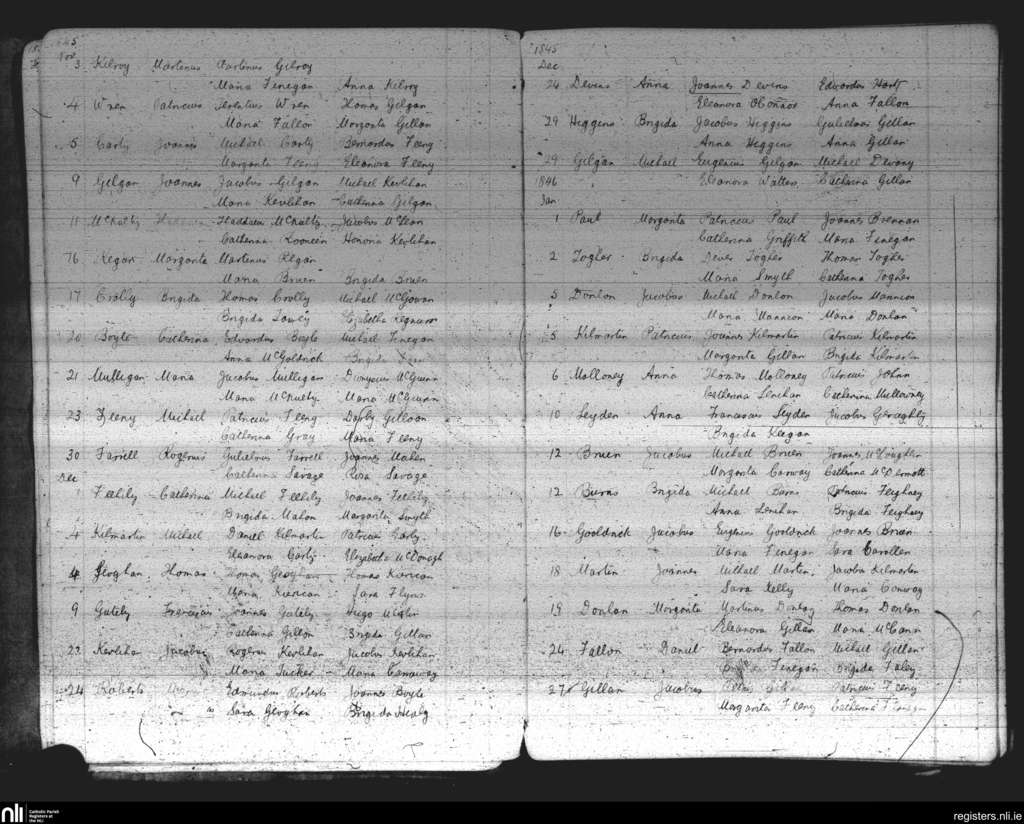 1845
Nov
3 Kilroy Martinus Martinus Gilroy
Maria Finegan Anna Kilroy
4 Wren Patricius Terentius Wren Thomas Gilgan
Maria Fallon Margarita Gillan
5 Carty Joannes Michael Carty Bernardus Feeny
Margarita Feeny Eleanora Feeny
9 Gilgan Joannes Jacobus Gilgan Michael Kevlihan
Maria Kevlihan Catherina Gilgan
11 McNulty Thaddaeus McNulty Jacobus
Catherina Honoria Kevlihan
16 Regan Margarita Martinus Regan
Maria Bruen Brigida Bruen
17 Crolly Brigida Thomas Crolly Michael McGowan
Brigida Elizabetha
20 Boyle Catherina Edwardus Boyle Michael Finegan
Anna McGoldrick Brigida
21 Mulligan Maria Jacobus Mulligan Dionysius McGuinn
Maria McNulty Maria McGuinn
23 Feeny Michael Patricius Feeny Darby Gilloon
Catherina Gray Maria Feeny
30 Farrell Rogerius Gulielmus Farrell Joannes Mahon
Dec
Catherina Savage Rosa Savage
1 Feehily Catherina Michael Feehily Joannes Feehily
Brigida Mahon Margarita Smyth
4 Kilmartin Michael Daniel Kilmartin Patricius Carty
Eleanora Carty Elizabetha McDonagh
4 Geoghan Thomas Thomas Geoghan Thomas Kiernan
Maria Kiernan Sara Flynn
9 Gately Franciscus Joannes Gately Hugo
Catherina Gillan Brigida Gillan
23 Kevlihan Jacobus Rogerius Kevlihan Jacobus Kevlihan
Maria Tucker Maria Conway
24 Roberts Edmundus Roberts Joannes Boyle
Sara Geoghan Brigida Healy
1845
Dec
24 Devins Anna Joannes Devins Edwardus Hart
Eleanora O'Connor Anna Fallon
29 Higgins Brigida Jacobus Higgins Gulielmus Gillan
Anna Higgins Anna Gillan
29 Gilgan Michael Eugenius Gilgan Michael Devany
1846 Eleanora Walters Catherina Gillan
Jan
1 Paul Margarita Patricius Paul Joannes Brennan
Catherina Griffith Maria Finegan
2 Togher Brigida Togher Thomas Togher
Maria Smyth Catherina Togher
5 Donlon Jacobus Michael Donlon Jacobus Mannion
Maria Mannion Maria Donlan
5 Kilmartin Patricius Joannes Kilmartin Patricius Kilmartin
Margarita Gillan Brigida Kilmartin
6 Molloney Anna Thomas Molloney Patricius
Catherina Lenehan Catherina Mullowney
10 Leyden Anna Franciscus Leyden Jacobus Geraghty
Brigida Keegan
12 Bruen Jacobus Michael Bruen Joannes
Margarita Conway Catherina McDermott
12 Burns Brigida Michael Burns Patricius Feighney
Anna Lenehan Brigida Feighney
16 Gooldrick Jacobus Eugenius Gooldrick Joannes Bruen
Maria Finegan Sara Carollan
18 Martin Joannes Michael Martin Jacobus Kilmartin
Sara Kelly Maria Conway
19 Donlan Margarita Martinus Donlan Thomas Donlan
Eleanora Gillan Maria McCann
24 Fallon Daniel Bernardus Fallon Michael Gillan
Finegan Brigida Faley
27 Gillan Jacobus Patricius Feeny
Margarita Feeny Catherina Finegan
nli
Catholic Parish
Registers at
the NLI
registers.nli.ie